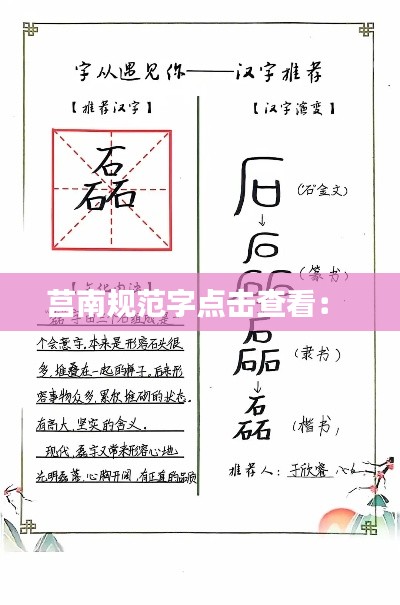 字从遇见你——汉字推荐
【推荐汉字】
磊
【文化内涵】
莒南规范字点击查看：
磊字由三个石组成是
个会意字.本来是形容石头很
多,堆叠在一起的样子.后来形
容事物众多,累积堆砌的状态.
有高大,坚实的含义.
现代,磊字又常来形容心地
光明磊落,心胸开阔,有正直的品质
【汉字演变】
石 (石金文)
磊 (篆书)
磊 (隶书)
磊 (楷书)
推荐人：于欣睿